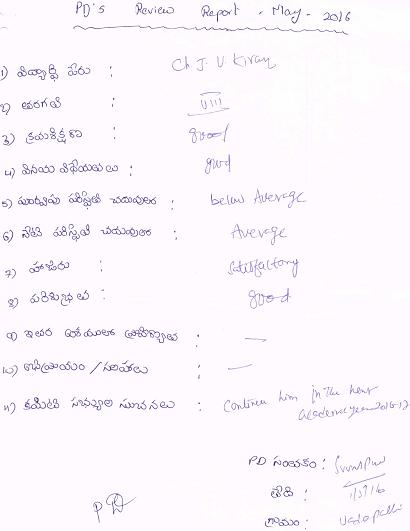 PD's Review Report - May - 2016
1) విద్యార్థి పేరు : Ch J. V. Kiran
2) తరగతి : VIII
3) క్రమశిక్షణ : good
4) వినయ విధేయతలు : good
5) పూర్వపు పరిస్థితి చదువులు : below Average
6) నేటి పరిస్థితి చదువులు : Average
7) హాజరు : Satisfactory
8) పరిశుభ్రత : good
9) ఇతర : —
10) అభిప్రాయం / సలహాలు : —
11) కమిటీ సభ్యుల సూచనలు : Continue him in the next
academic year 2016-17
PD సంతకం :
తేది : 1/5/16
గ్రామం : Vadapalli